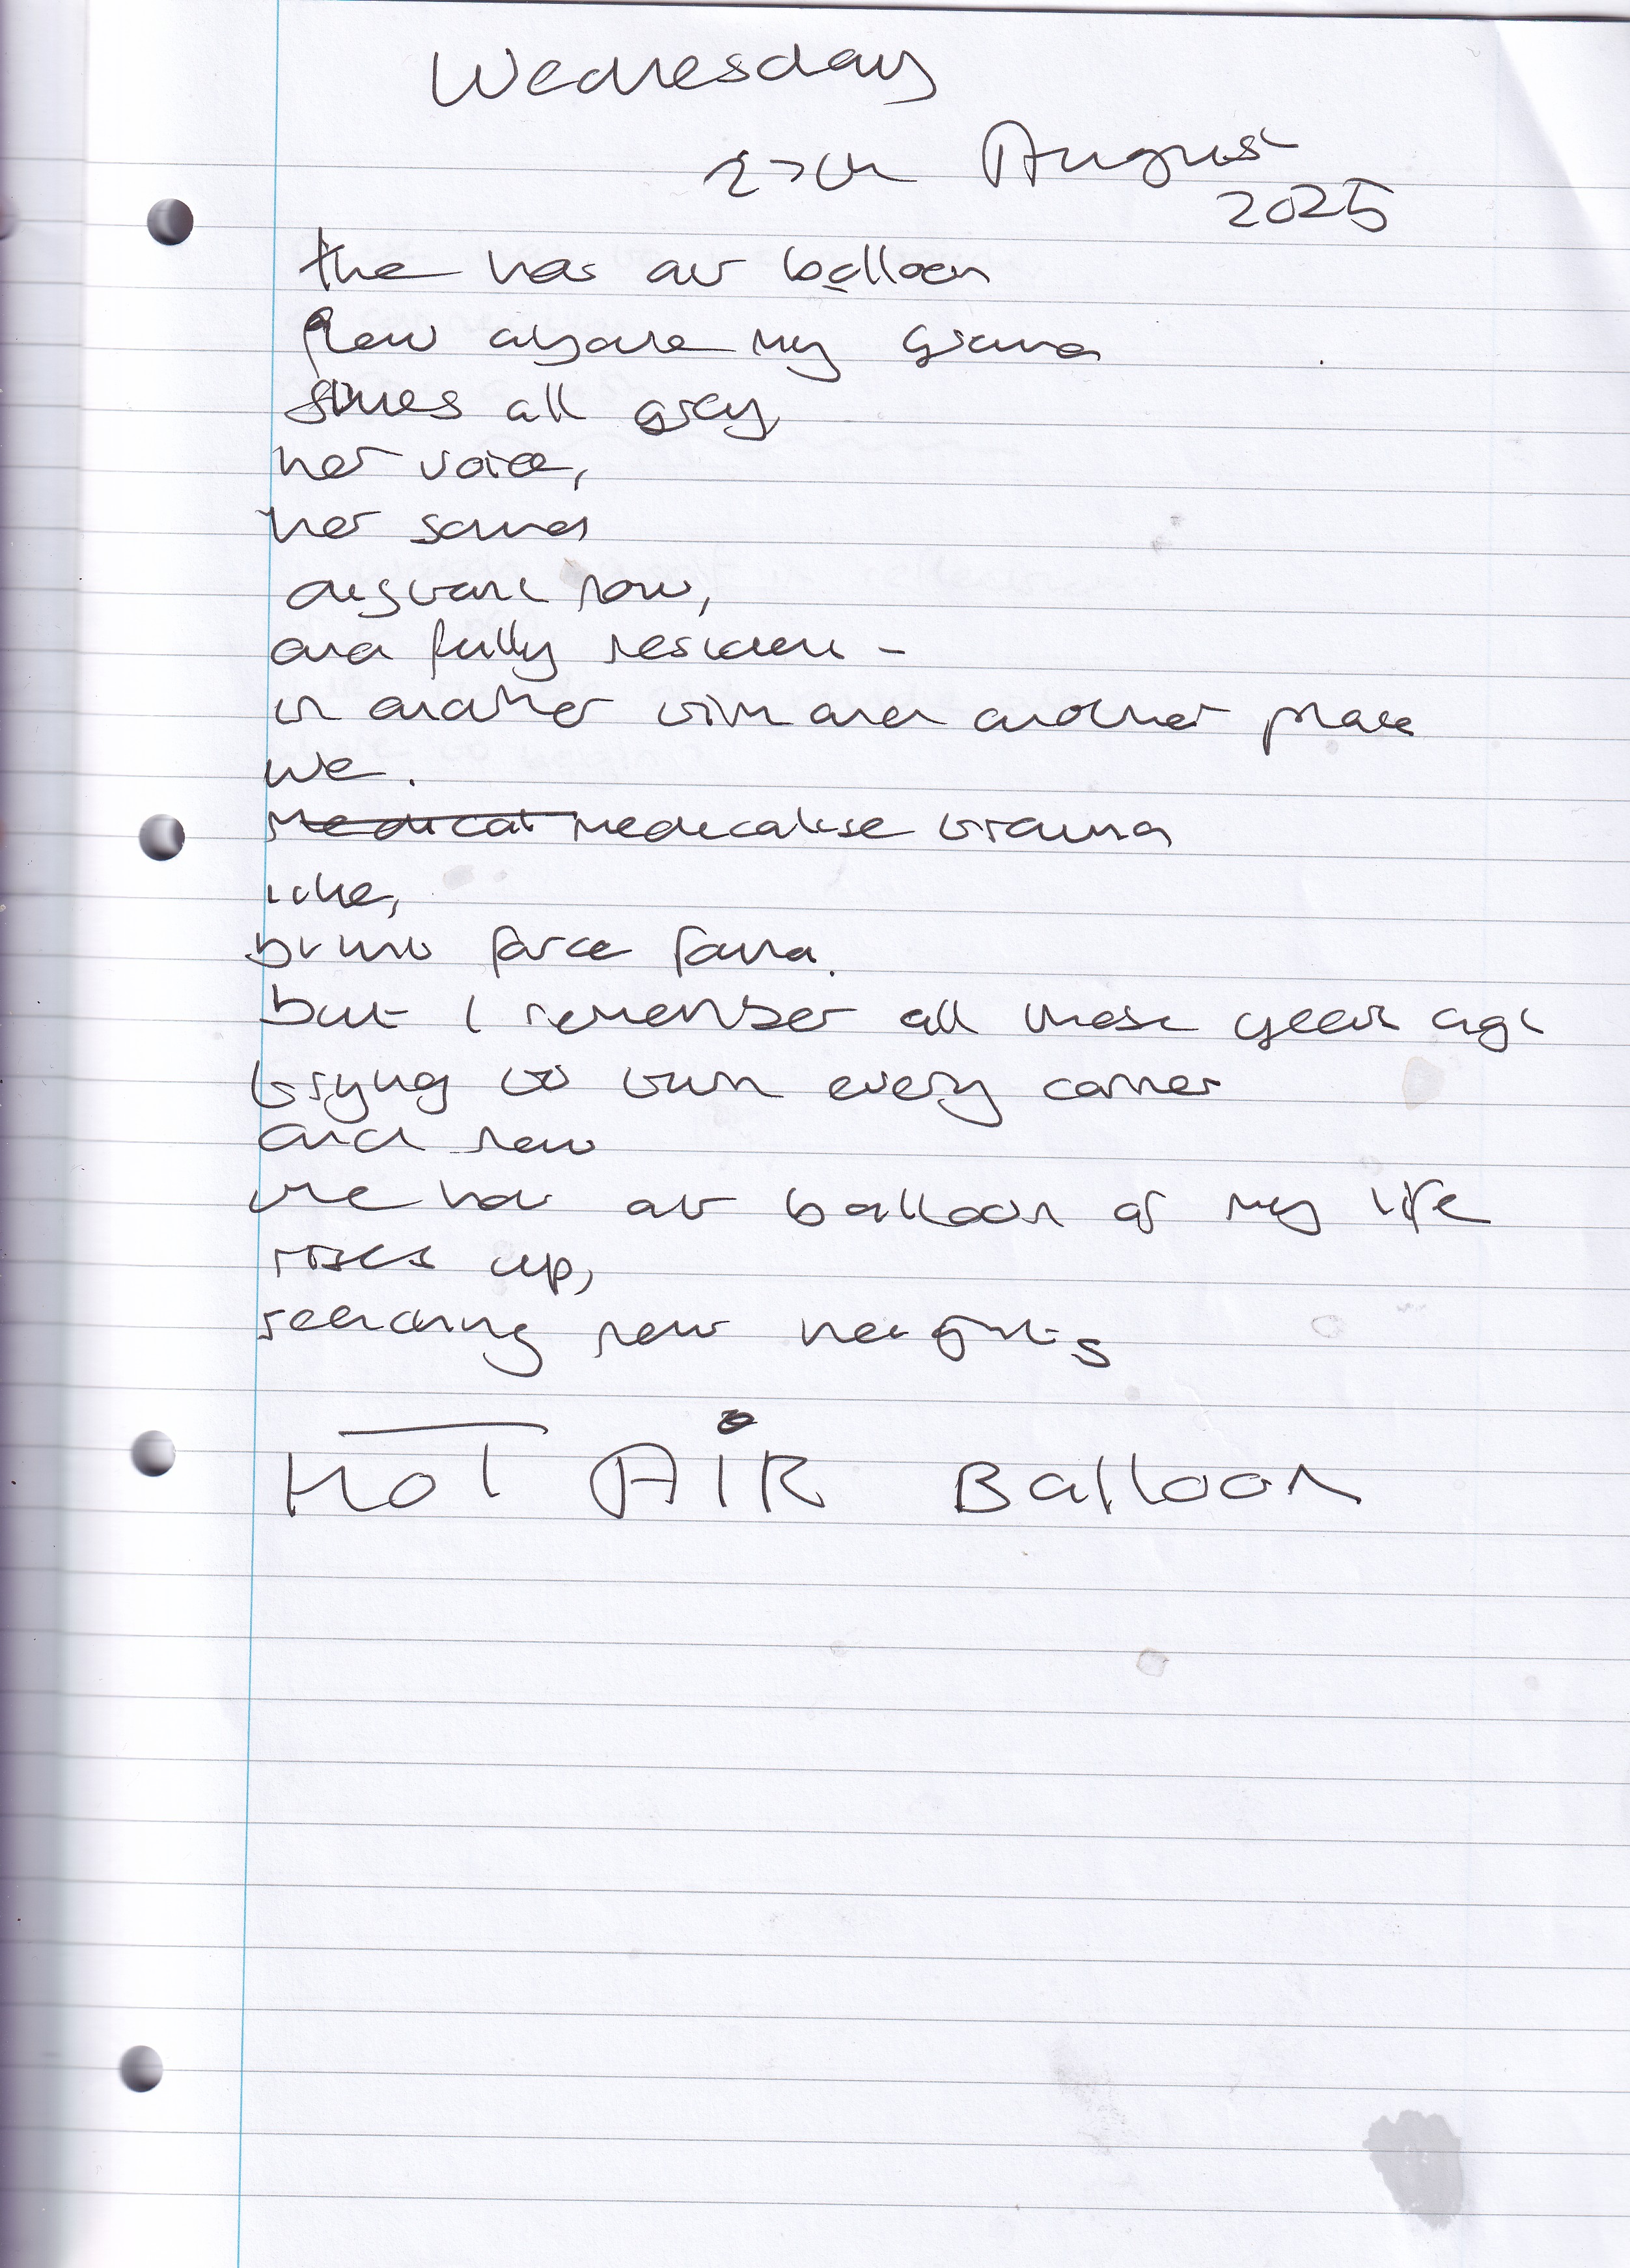 Wednesday
27th August
2025
the hot air balloon
flew above my
all grey
her voice,
her sound
distant now,
and fully resident -
in another time and another place
we.
medicalise trauma
like,
force
but I remember all those years ago
trying to turn every corner
and now
the hot air balloon of my life
rises up,
reaching new heights
HOT AIR Balloon